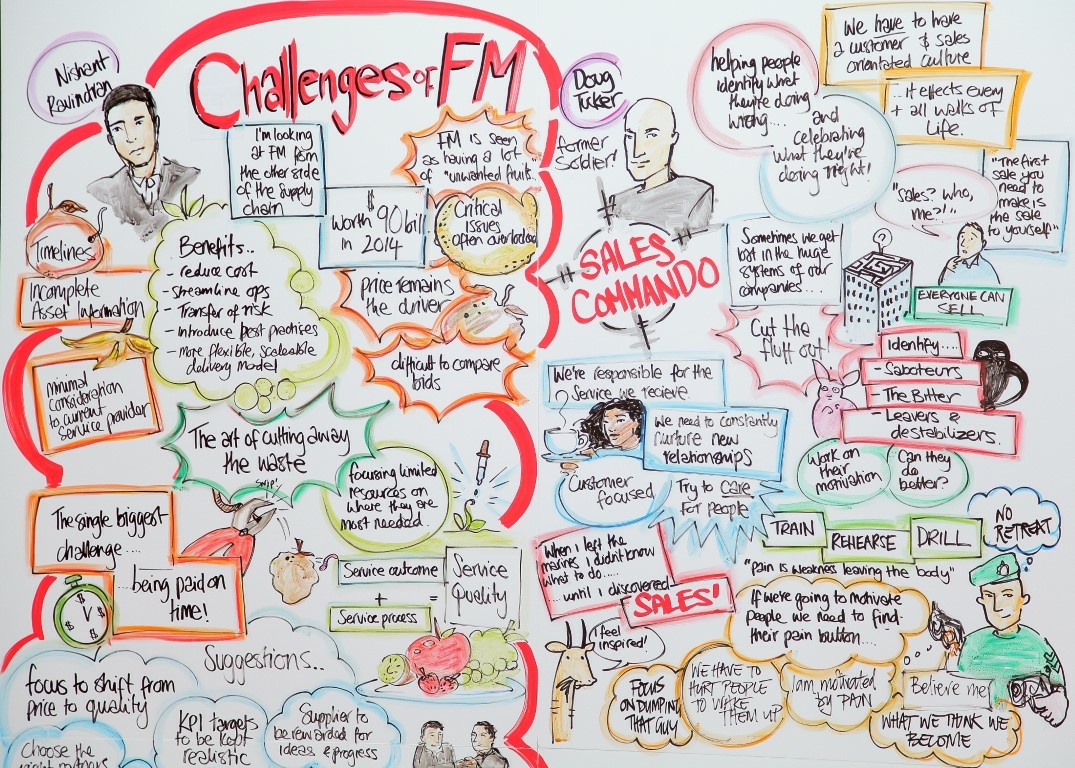 Nishant
Ravindran
Challenges of FM
I'm looking
at FM from
the other side
of the supply
chain
FM is seen
as having a lot
of "unwanted fruit"..
Worth $90bill
in 2014
Critical
issues
often overlooked
Timelines
Incomplete
Asset Information
Benefits..
- reduce cost
- streamline ops
- Transfer of risk
- Introduce best practices
- more flexible, scaleable
delivery model
Price remains
the driver
difficult to compare
bids
minimal
consideration
to current
service provider
The art of cutting away
the waste
snip!
focusing limited
resources on
where they are
most needed.
The single biggest
challenge....
...being paid on
time!
$ V $
$
Service outcome
+
Service process
=
Service
Quality
Suggestions..
focus to shift from
price to quality
KPI targets
to be kept
realistic
Supplier to
be rewarded for
ideas & progress
Choose the
right partners
Doug
Tucker
former
Soldier!
SALES
COMMANDO
helping people
identify what
they're doing
wrong....
and
celebrating
what they're
doing right!
We have to have
a customer & sales
orientated culture
...it effects every
+ all walks of
life.
"Sales? who,
me?!"
"The first
sale you
need to
make is
the sale
to yourself"
Sometimes we get
lost in the huge
systems of our
companies....
?
EVERYONE CAN
SELL
Cut the
fluff out!
Identify....
- Saboteurs
- The Bitter
- Leavers &
destabilizers.
We're responsible for the
Service we recieve.
We need to constantly
nurture new
relationships
Customer
focused
Try to care
for people
Work on
their
motivation
Can they
do
better?
TRAIN
REHEARSE
DRILL
NO
RETREAT
"Pain is weakness leaving the body"
When I left the
marines I didn't know
what to do.....
...until I discovered
SALES!
I feel
inspired!
If we're going to motivate
people we need to find
their pain button....
FOCUS
ON DUMPING
THAT GUY
WE HAVE TO
HURT PEOPLE
TO WAKE
THEM UP
I am motivated
by PAIN
Believe me!
WHAT WE THINK WE
BECOME